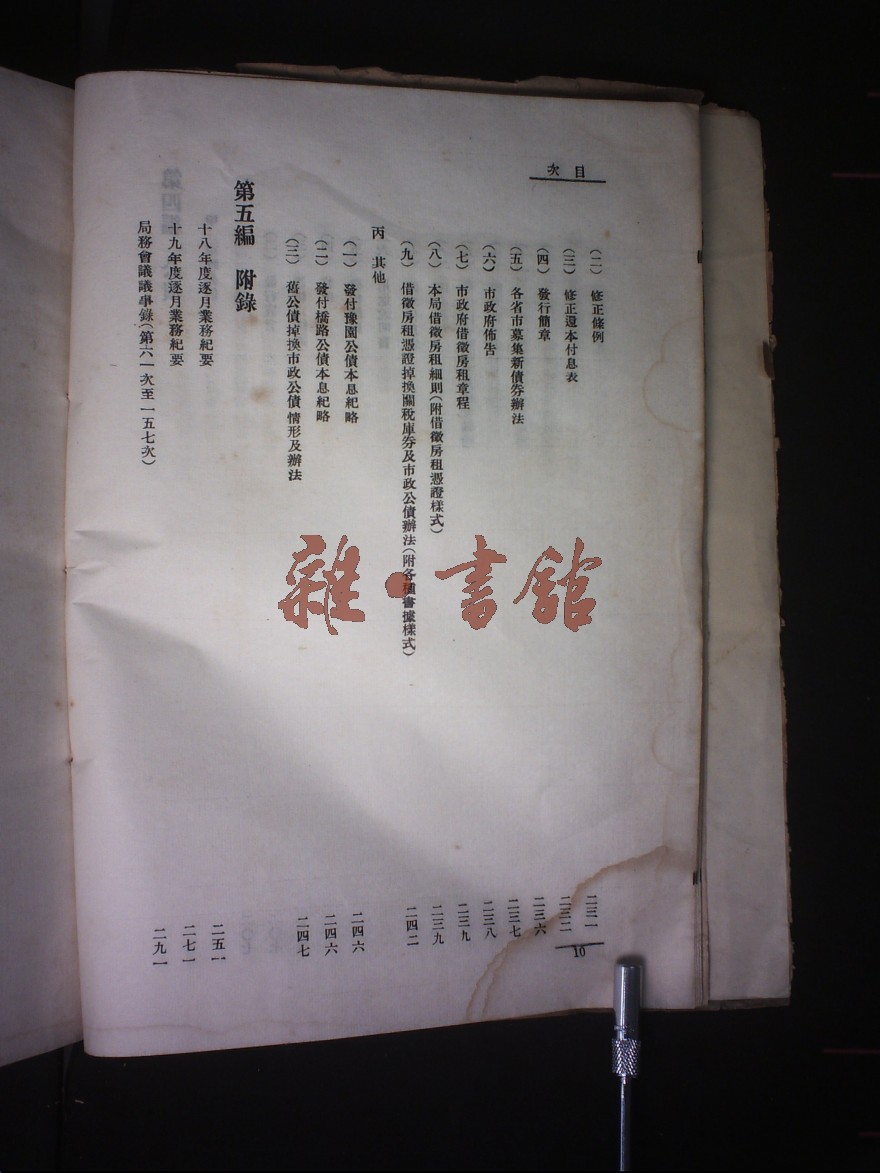 目次
（二）修正條例
二三一
（三）修正還本付息表
二三二
（四）發行簡章
二三六
（五）各省市募集新債券辦法
二三七
（六）市政府佈告
二三八
（七）市政府借徵房租章程
二三九
（八）本局借徵房租細則（附借徵房租憑證樣式）
二三九
（九）借徵房租憑證掉換關稅庫券及市政公債辦法（附各種書據樣式）
二四二
丙 其他
（一）發付豫園公債本息紀略
二四六
（二）發付橋路公債本息紀略
二四六
（三）舊公債掉換市政公債情形及辦法
二四七
第五編 附錄
十八年度逐月業務紀要
二五一
十九年度逐月業務紀要
二七一
局務會議議事錄（第六一次至一五七次）
二九一
10
雜·書館